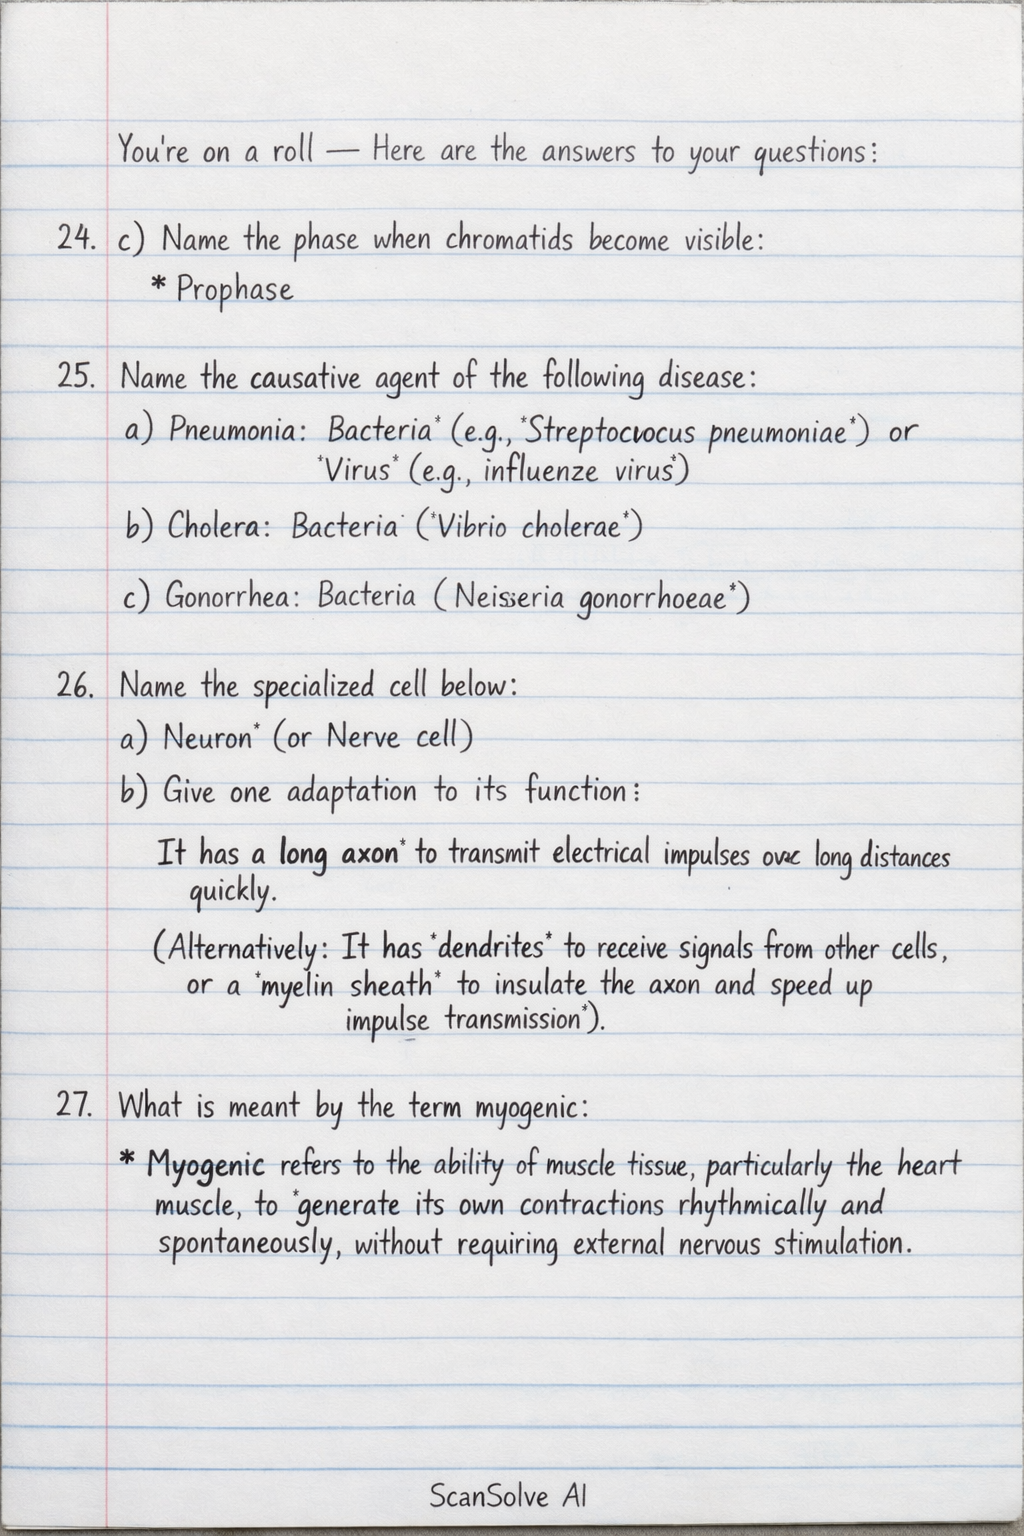 You're on a roll — Here are the answers to your questions:
24. c) Name the phase when chromatids become visible:
* Prophase
25. Name the causative agent of the following disease:
a) Pneumonia: Bacteria* (e.g., *Streptocvocus pneumoniae*) or
*Virus* (e.g., influenze virus*)
b) Cholera: Bacteria (*Vibrio cholerae*)
c) Gonorrhea: Bacteria (Neisseria gonorrhoeae*)
26. Name the specialized cell below:
a) Neuron* (or Nerve cell)
b) Give one adaptation to its function:
It has a long axon* to transmit electrical impulses long distances
quickly.
(Alternatively: It has *dendrites* to receive signals from other cells,
or a *myelin sheath* to insulate the axon and speed up
impulse transmission*).
27. What is meant by the term myogenic:
* Myogenic refers to the ability of muscle tissue, particularly the heart
muscle, to *generate its own contractions rhythmically and
spontaneously, without requiring external nervous stimulation.
ScanSolve AI